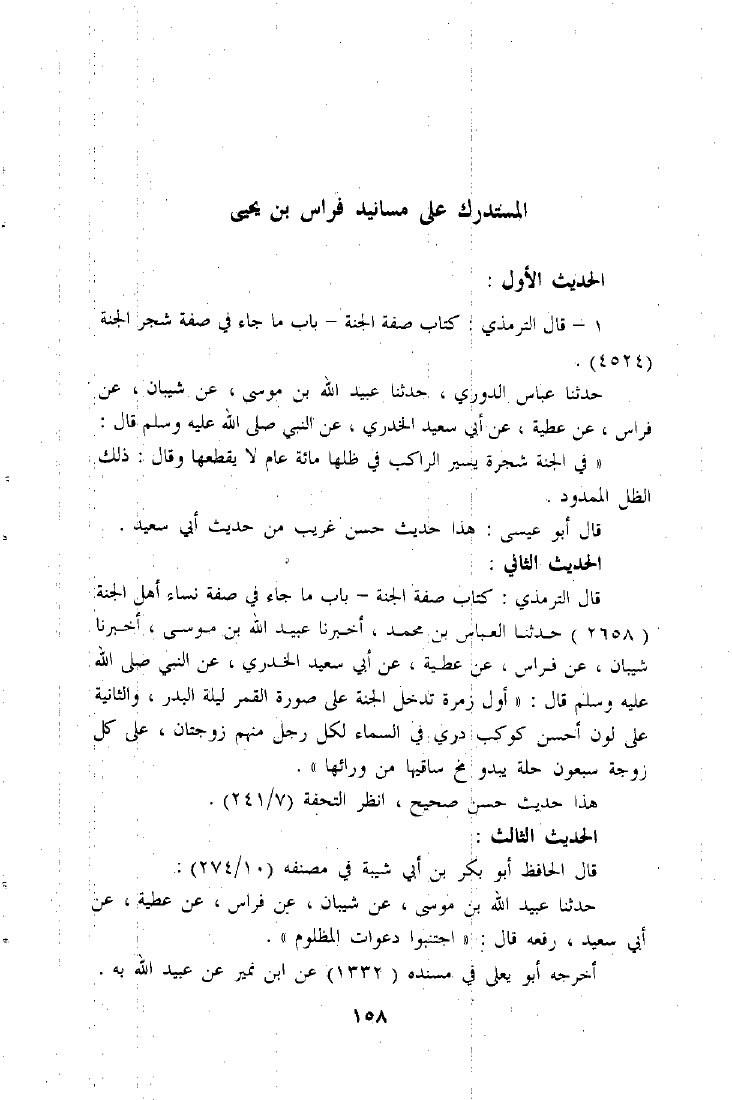 المستدرك على مسانيد فراس بن يحيى
الحديث الأول :
١ – قال الترمذي : كتاب صفة الجنة – باب ما جاء في صفة شجر الجنة
(٤٥٢٤) .
حدثنا عباس الدوري ، حدثنا عبيد الله بن موسى ، عن شيبان ، عن
فراس ، عن عطية ، عن أبي سعيد الخدري ، عن النبي صلى الله عليه وسلم قال :
« في الجنة شجرة يسير الراكب في ظلها مائة عام لا يقطعها وقال : ذلك
الظل الممدود .
قال أبو عيسى : هذا حديث حسن غريب من حديث أبي سعيد .
الحديث الثاني :
قال الترمذي : كتاب صفة الجنة – باب ما جاء في صفة نساء أهل الجنة
( ٢٦٥٨ ) حدثنا العباس بن محمد ، أخبرنا عبيد الله بن موسى ، أخبرنا
شيبان ، عن فراس ، عن عطية ، عن أبي سعيد الخدري ، عن النبي صلى الله
عليه وسلم قال : « أول زمرة تدخل الجنة على صورة القمر ليلة البدر ، والثانية
على لون أحسن كوكب دري في السماء لكل رجل منهم زوجتان ، على كل
زوجة سبعون حلة يبدو مخ ساقيها من ورائها » .
هذا حديث حسن صحيح ، انظر التحفة (٢٤١/٧) .
الحديث الثالث :
قال الحافظ أبو بكر بن أبي شيبة في مصنفه (٢٧٤/١٠) :
حدثنا عبيد الله بن موسى ، عن شيبان ، عن فراس ، عن عطية ، عن
أبي سعيد ، رفعه قال : « اجتنبوا دعوات المظلوم » .
أخرجه أبو يعلى في مسنده ( ١٣٣٢) عن ابن نمير عن عبيد الله به .
١٥٨